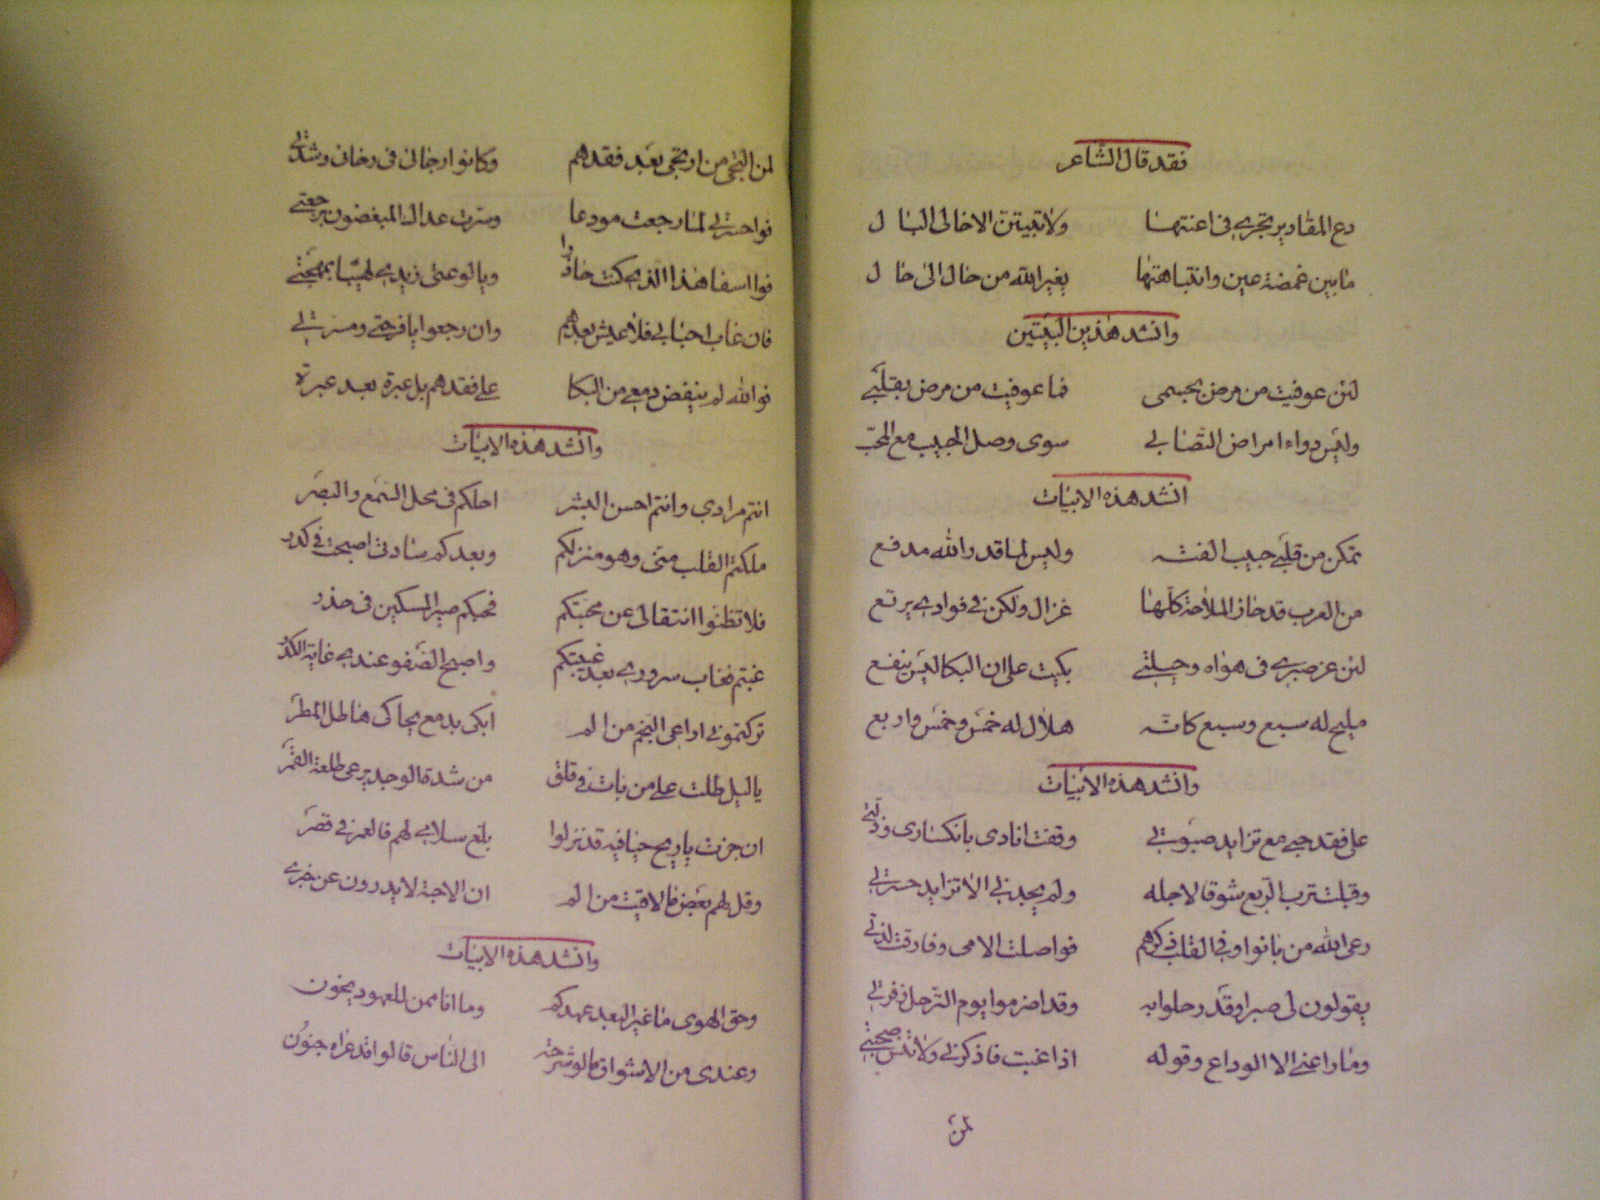 فقد قال الشاعر
دع المقادير تجري في اعنتها ولا تبيتن الا خالى البال
ما بين غمضة عين وانتباهتها يغير الله من حال الى حال
وانشد هذين البيتين
لئن عوفيت من مرض بجسمى فما عوفيت من مرض بقلبي
وليس دواء امراض التصابي سوى وصل الحبيب مع المحب
انشد هذه الابيات
تمكن من قلبي حبيب الفته وليس لما قدر الله مدفع
من العرب قد حاز الملاحة كلها غزال ولكن في فوادي يرتع
لئن عز صبري في هواه وحيلتي بكيت على ان البكا ليس ينفع
مليح له سبع وسبع كانه هلال له خمس وخمس واربع
وانشد هذه الابيات
على فقد حبي مع تزايد صبوتي وقفت انادى بانكسارى وذلتي
وقبلت ترب الربع شوقا لاجله ولم يجدني الا تزايد حسرتي
رعى الله من بانوا وفي القلب ذكرهم فواصلت الامى وفارقت لذتي
يقولون لى صبرا وقد رحلوا به وقد اضرموا يوم الترحل زفرتي
وما راعني الا الوداع وقوله اذا غبت فاذكرني ولا تنس صحبتي
لمن
لمن التجى من ارتجى بعد فقدهم وكانوا رجائى فى رخائى وشدتي
فواحسرتي لما رجعت مودعا وسرت عداك المبغضون برجعتي
فوا اسفا هذا الذي كنت حاذرا ويا لوعتى زيدي لهيبا بمهجتي
فان غاب احبابي فلا عيش بعدهم وان رجعوا يا فرحتي ومسرتي
فوالله لم ينفض دمعي من البكا على فقدهم بل عبرة بعد عبرة
وانشد هذه الابيات
انتم مرادي وانتم احسن البشر احلكم في محل السمع والبصر
ملكتم القلب منى وهو منزلكم وبعدكم سادتى اصبحت في كدر
فلا تظنوا انتقالى عن محبتكم فحبكم صير المسكين فى حذر
غبتم فغاب سروري بعد غيبتكم واصبح الصفو عندي غاية الكدر
تركتموني اراعى النجم من الم ابكى بدمع يحاكى هاطل المطر
يا ليل طلت على من بات في قلق من شدة الوجد يرعى طلعة القمر
ان جزت يا ريح حيا فيه قد نزلوا بلغ سلامي لهم فالعمر في قصر
وقل لهم بعض ما لاقيت من الم ان الاحبة لا يدرون عن خبري
وانشد هذه الابيات
وحق الهوى ما غير البعد عهدكم وما انا ممن للعهود يخون
وعندى من الاشواق ما لو شرحته الى الناس قالوا قد عراه جنون